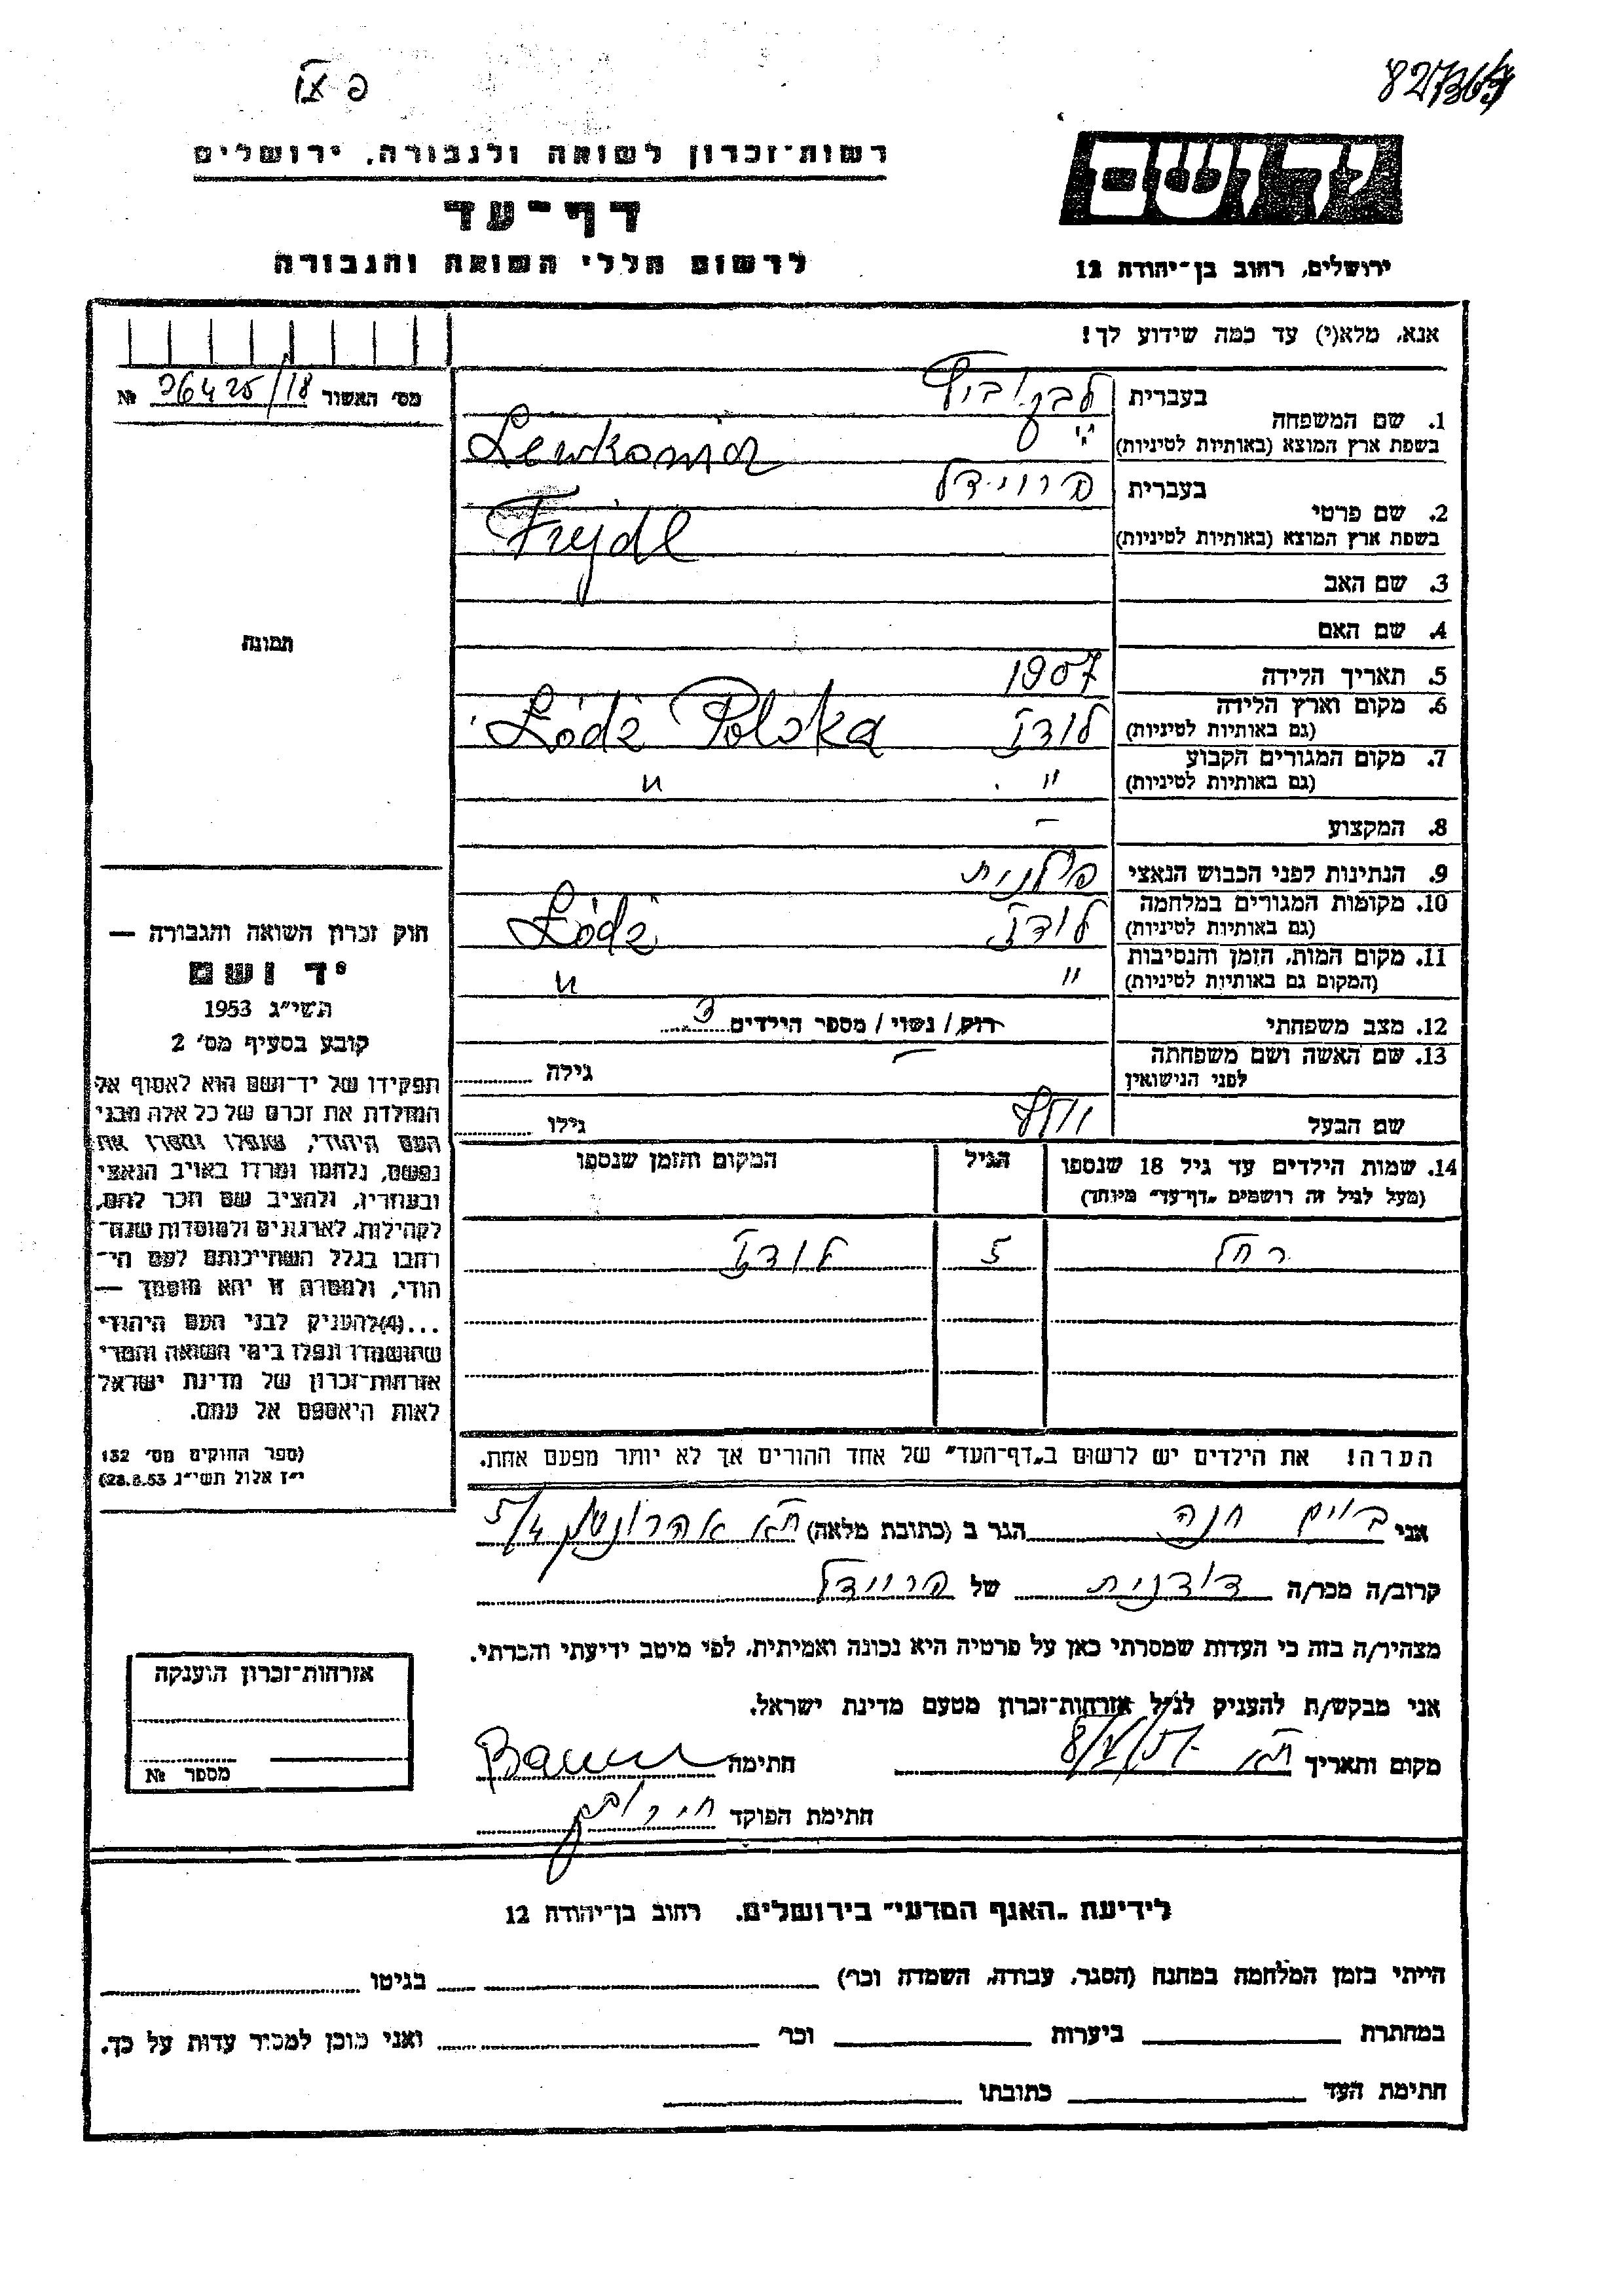 רשות־זכרון לשואה ולגבורה, ירושלים
דף־עד
לרשום חללי השואה והגבורה
ידושם
ירושלים, רחוב בן־יהודה 12
אנא, מלא(י) עד כמה שידוע לך!
מס׳ האשור 36425/18 №
תמונה
1. שם המשפחה בעברית
בשפת ארץ המוצא (באותיות לטיניות) Lewkowicz
2. שם פרטי בעברית פרויידל
בשפת ארץ המוצא (באותיות לטיניות) Frejdl
3. שם האב
4. שם האם
5. תאריך הלידה 1907
6. מקום וארץ הלידה (גם באותיות לטיניות) לודז Łódź Polska
7. מקום המגורים הקבוע (גם באותיות לטיניות) " "
8. המקצוע –
9. הנתינות לפני הכבוש הנאצי פולנית
10. מקומות המגורים במלחמה (גם באותיות לטיניות) לודז Łódź
11. מקום המות, הזמן והנסיבות (המקום גם באותיות לטיניות) " "
12. מצב משפחתי רוק/ נשוי/ מספר הילדים
13. שם האשה ושם משפחתה לפני הנישואין – גילה
שם הבעל גילו
14. שמות הילדים עד גיל 18 שנספו הגיל המקום והזמן שנספו
(מעל לגיל זה רושמים „דף־עד” מיוחד)
רחל 5 לודז
הערה! את הילדים יש לרשום ב„דף־העד” של אחד ההורים אך לא יותר מפעם אחת.
חוק זכרון השואה והגבורה —
יד ושם
תשי״ג 1953
קובע בסעיף מס׳ 2
תפקידו של יד־ושם הוא לאסוף אל
המולדת את זכרם של כל אלה מבני
העם היהודי, שנפלו ומסרו את
נפשם, נלחמו ומרדו באויב הנאצי
ובעוזריו, ולהציב שם וזכר להם,
לקהילות, לארגונים ולמוסדות שנח־
רבו בגלל השתייכותם לעם הי־
הודי, ולמטרה זו יהא מוסמך —
...(4)להעניק לבני העם היהודי
שהושמדו ונפלו בימי השואה והמרי
אזרחות־זכרון של מדינת ישראל
לאות היאספם אל עמם.
(ספר החוקים מס׳ 132
י״ז אלול תשי״ג 28.8.53)
אני בוים חנה הגר ב (כתובת מלאה) ת״א
קרוב/ה מכר/ה דודנית של פרויידל
מצהיר/ה בזה כי העדות שמסרתי כאן על פרטיה היא נכונה ואמיתית, לפי מיטב ידיעתי והכרתי.
אני מבקש/ת להעניק לנ״ל אזרחות־זכרון מטעם מדינת ישראל.
מקום ותאריך ת״א חתימה
חתימת הפוקד
אזרחות־זכרון הוענקה
מספר №
לידיעת „האגף המדעי” בירושלים, רחוב בן־יהודה 12
הייתי בזמן המלחמה במחנה (הסגר, עבודה, השמדה וכו׳) בגיטו
במחתרת ביערות וכו׳ ואני מוכן למסור עדות על כך.
חתימת העד כתובתו